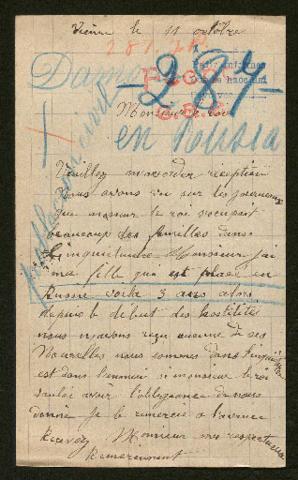 Vienne le 11 octobre
Dame
-284-
Monsieur le roi
en Russia
Veuillez m'accorder réception
nous avons vu sur les journeaux
que monsieur le roi s'occupait
beaucoup des familles dans
l'inquietudre Monsieur j'ai
une fille qui est placé en
Russie voila 3 ans alors
depuis le début des hostilités
nous n'avons reçu aucune de ses
Nouvelles nous sommes dans l'inquiétude
est dans l'ennui si monsieur le roi
voulai avoir l'obligeance de nous
donné je le remercie a l'avance
Recevez Monsieur mes respectueux
Remerciement